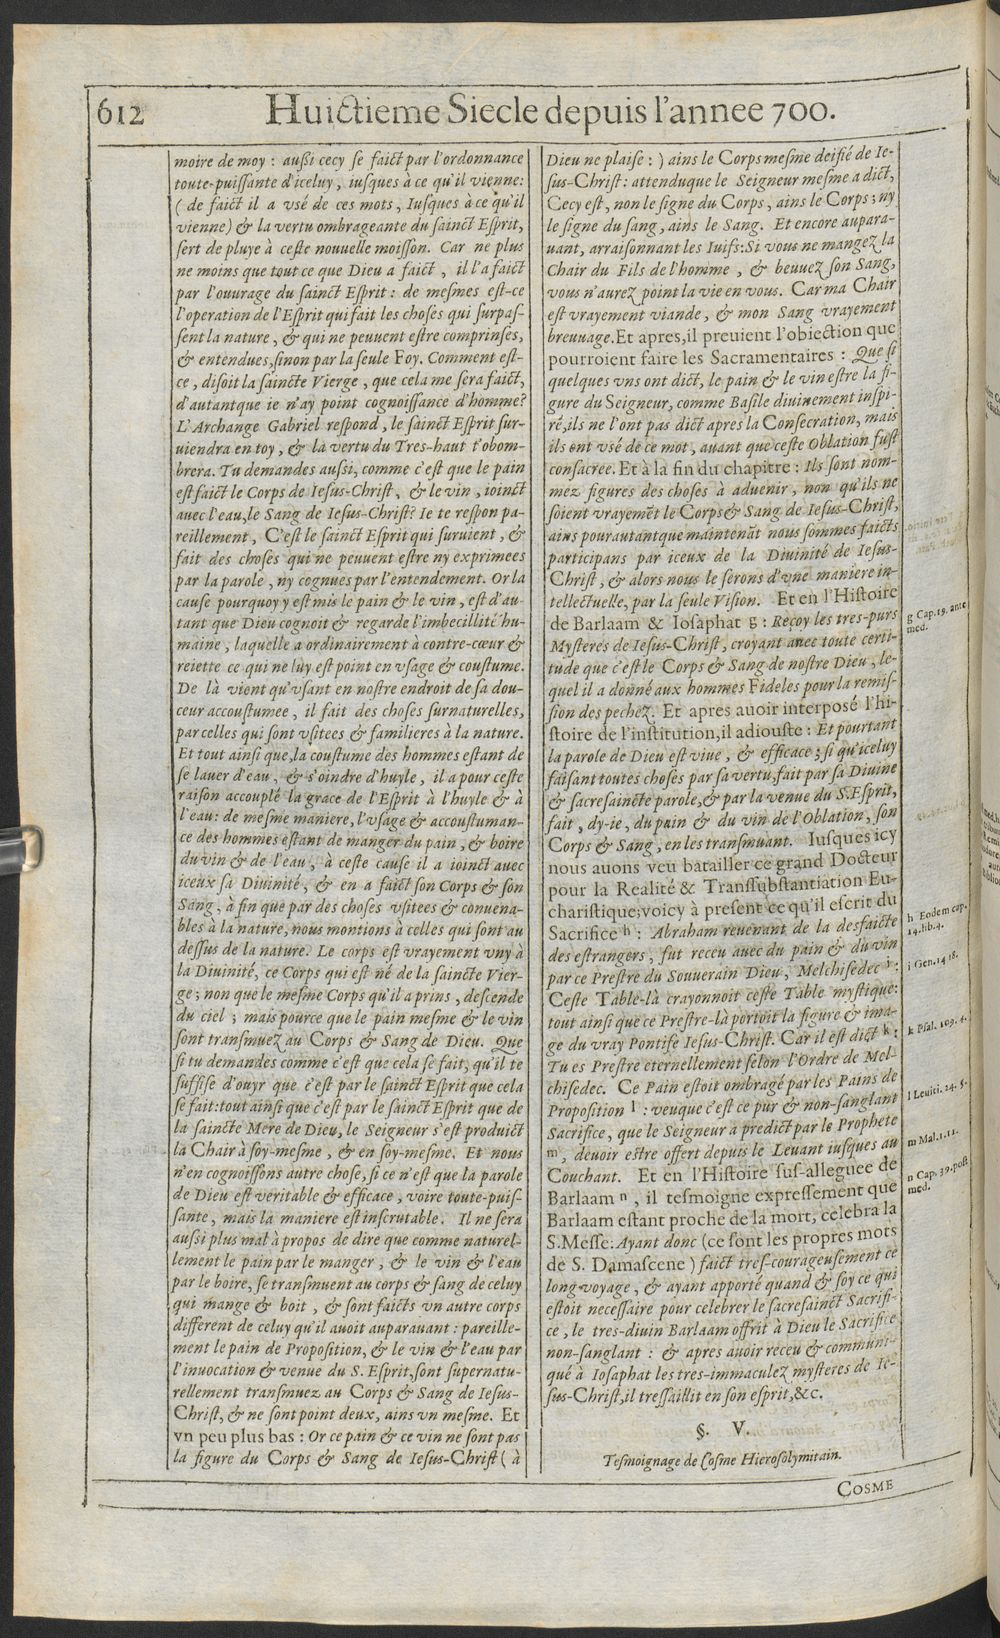 612
Huictieme Siecle depuis l'annee 700.
moire de moy : aussi cecy se faict par l'ordonnance
toute-puissante d'iceluy, iusques à ce qu'il vienne:
( de faict il a vsé de ces mots, Iusques à ce qu'il
vienne) & la vertu ombrageante du sainct Esprit,
sert de pluye à ceste nouuelle moisson. Car ne plus
ne moins que tout ce que Dieu a faict, il l'a faict
par l'ouurage du sainct Esprit : de mesmes est-ce
l'operation de l'Esprit qui fait les choses qui surpas-
sent la nature, & qui ne peuuent estre comprinses,
& entendues, sinon par la seule Foy. Comment est-
ce, disoit la saincte Vierge, que cela me sera faict,
d'autantque ie n'ay point cognoissance d'homme?
L'Archange Gabriel respond, le sainct Esprit sur-
uiendra en toy, & la vertu du Tres-haut t'obom-
brera. Tu demandes aussi, comme c'est que le pain
est faict le Corps de Iesus-Christ, & le vin, ioinct
auec l'eau, le Sang de Iesus-Christ? Ie te respon pa-
reillement, C'est le sainct Esprit qui suruient, &
fait des choses qui ne peuuent estre ny exprimees
par la parole, ny cognues par l'entendement. Or la
cause pourquoy y est mis le pain & le vin, est d'au-
tant que Dieu cognoit & regarde l'imbecillité hu-
maine, laquelle a ordinairement à contre-cœur &
reiette ce qui ne luy est point en vsage & coustume.
De là vient qu'vsant en nostre endroit de sa dou-
ceur accoustumee, il fait des choses surnaturelles,
par celles qui sont vsitees & familieres à la nature.
Et tout ainsi que la coustume des hommes estant de
se lauer d'eau, & s'oindre d'huyle, il a pour ceste
raison accouplé la grace de l'Esprit à l'huyle & à
l'eau: de mesme maniere, l'vsage & accoustuman-
ce des hommes estant de manger du pain, & boire
du vin & de l'eau, à ceste cause il a ioinct auec
iceux sa Diuinité, & en a faict son Corps & son
Sang, à fin que par des choses vsitees & conuena-
bles à la nature, nous montions à celles qui sont au
dessus de la nature. Le corps est vrayement vny à
la Diuinité, ce Corps qui est né de la saincte Vier-
ge; non que le mesme Corps qu'il a prins, descende
du ciel ; mais pource que le pain mesme & le vin
sont transmuez au Corps & Sang de Dieu. Que
si tu demandes comme c'est que cela se fait, qu'il te
suffise d'ouyr que c'est par le sainct Esprit que cela
se fait: tout ainsi que c'est par le sainct Esprit que de
la saincte Mere de Dieu, le Seigneur s'est produict
la Chair à soy-mesme, & en soy-mesme. Et nous
n'en cognoissons autre chose, si ce n'est que la parole
de Dieu est veritable & efficace, voire toute-puis-
sante, mais la maniere est inscrutable. Il ne sera
aussi plus mal à propos de dire que comme naturel-
lement le pain par le manger, & le vin & l'eau
par le boire, se transmuent au corps & sang de celuy
qui mange & boit, & sont faicts vn autre corps
different de celuy qu'il auoit auparauant : pareille-
ment le pain de Proposition, & le vin & l'eau par
l'inuocation & venue du S. Esprit, sont supernatu-
rellement transmuez au Corps & Sang de Iesus-
Christ, & ne sont point deux, ains vn mesme. Et
vn peu plus bas : Or ce pain & ce vin ne sont pas
la figure du Corps & Sang de Iesus-Christ ( à
Dieu ne plaise : ) ains le Corps mesme deifié de Ie-
sus-Christ : attenduque le Seigneur mesme a dict,
Cecy est, non le signe du Corps, ains le Corps ; ny
le signe du sang, ains le Sang. Et encore aupara-
uant, arraisonnant les Iuifs: Si vous ne mangez la
Chair du Fils de l'homme, & beuuez son Sang,
vous n'aurez point la vie en vous. Car ma Chair
est vrayement viande, & mon Sang vrayement
breuuage. Et apres, il preuient l'obiection que
pourroient faire les Sacramentaires : Que si
quelques vns ont dict, le pain & le vin estre la fi-
gure du Seigneur, comme Basile diuinement inspi-
ré, ils ne l'ont pas dict apres la Consecration, mais
ils ont vsé de ce mot, auant que ceste Oblation fust
consacree. Et à la fin du chapitre : Ils sont nom-
mez figures des choses à aduenir, non qu'ils ne
soient vrayemẽt le Corps & Sang de Iesus-Christ,
ains pourautant que maintenãt nous sommes faicts
participans par iceux de la Diuinité de Iesus-
Christ, & alors nous le serons d'vne maniere in-
tellectuelle, par la seule Vision. Et en l'Histoire
de Barlaam & Iosaphat g : Reçoy les tres-purs
Mysteres de Iesus-Christ, croyant auec toute certi-
tude que c'est le Corps & Sang de nostre Dieu, le-
quel il a donné aux hommes Fideles pour la remis-
sion des pechez. Et apres auoir interposé l'hi-
stoire de l'institution, il adiouste : Et pourtant
la parole de Dieu est viue, & efficace ; si qu'iceluy
faisant toutes choses par sa vertu, fait par sa Diuine
& sacresaincte parole, & par la venue du S. Esprit,
fait, dy-ie, du pain & du vin de l'Oblation, son
Corps & Sang, en les transmuant. Iusques icy
nous auons veu batailler ce grand Docteur
pour la Realité & Transsubstantiation Eu-
charistique; voicy à present ce qu'il escrit du
Sacrifice h : Abraham reuenant de la desfaicte
des estrangers, fut receu auec du pain & du vin
par ce Prestre du Souuerain Dieu, Melchisedec i :
Ceste Table-là crayonnoit ceste Table mystique:
tout ainsi que ce Prestre-là portoit la figure & ima-
ge du vray Pontife Iesus-Christ. Car il est dict k :
Tu es Prestre eternellement selon l'Ordre de Mel-
chisedec. Ce Pain estoit ombragé par les Pains de
Proposition l : veuque c'est ce pur & non-sanglant
Sacrifice, que le Seigneur a predict par le Prophete
m, deuoir estre offert depuis le Leuant iusques au
Couchant. Et en l'Histoire sus-alleguee de
Barlaam n, il tesmoigne expressement que
Barlaam estant proche de la mort, celebra la
S. Messe: Ayant donc (ce sont les propres mots
de S. Damascene ) faict tres-courageusement ce
long voyage, & ayant apporté quand & soy ce qui
estoit necessaire pour celebrer le sacresainct Sacrifi-
ce, le tres-diuin Barlaam offrit à Dieu le Sacrifice
non-sanglant : & apres auoir receu & communi-
qué à Iosaphat les tres-immaculez mysteres de Ie-
sus-Christ, il tressaillit en son esprit, &c.
§. V.
Tesmoignage de Cosme Hierosolymitain.
COSME
g Cap.19. ante
med.
h Eodem cap.
14.lib.4.
i Gen.14 18.
k Psal. 109. 4.
l Leuiti. 24. 5.
m Mal.1.11.
n Cap. 39. post
med.